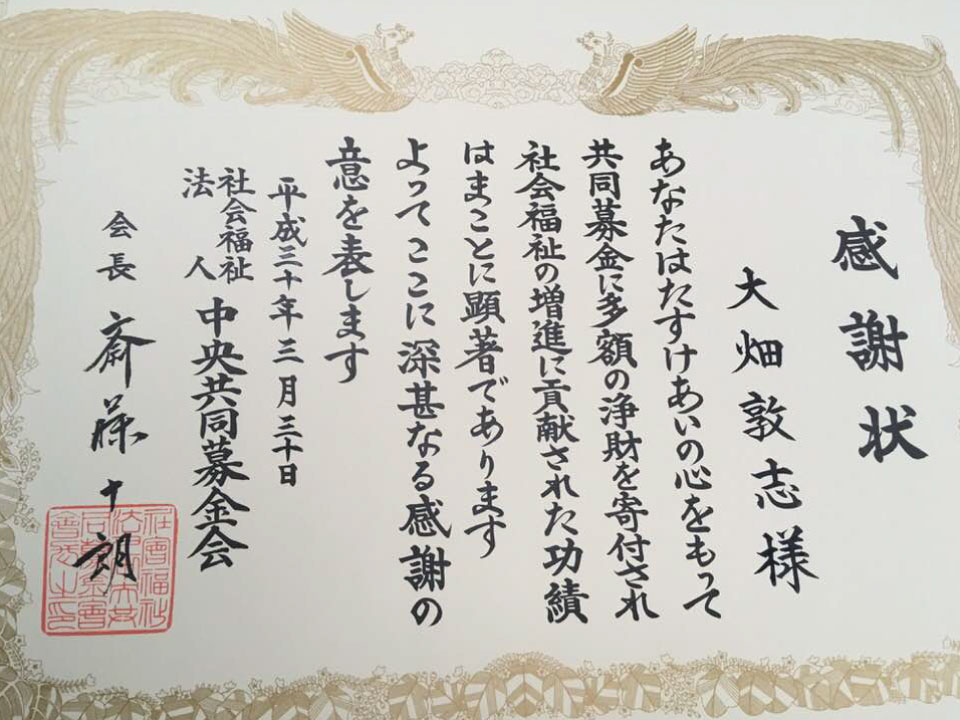 感謝状
大畑敦志様
あなたはたすけあいの心をもって
共同募金に多額の浄財を寄付され
社会福祉の増進に貢献された功績
はまことに顕著であります
よってここに深甚なる感謝の
意を表します
平成三十年三月三十日
社会福祉
法人
中央共同募金会
会長 斎藤十朗